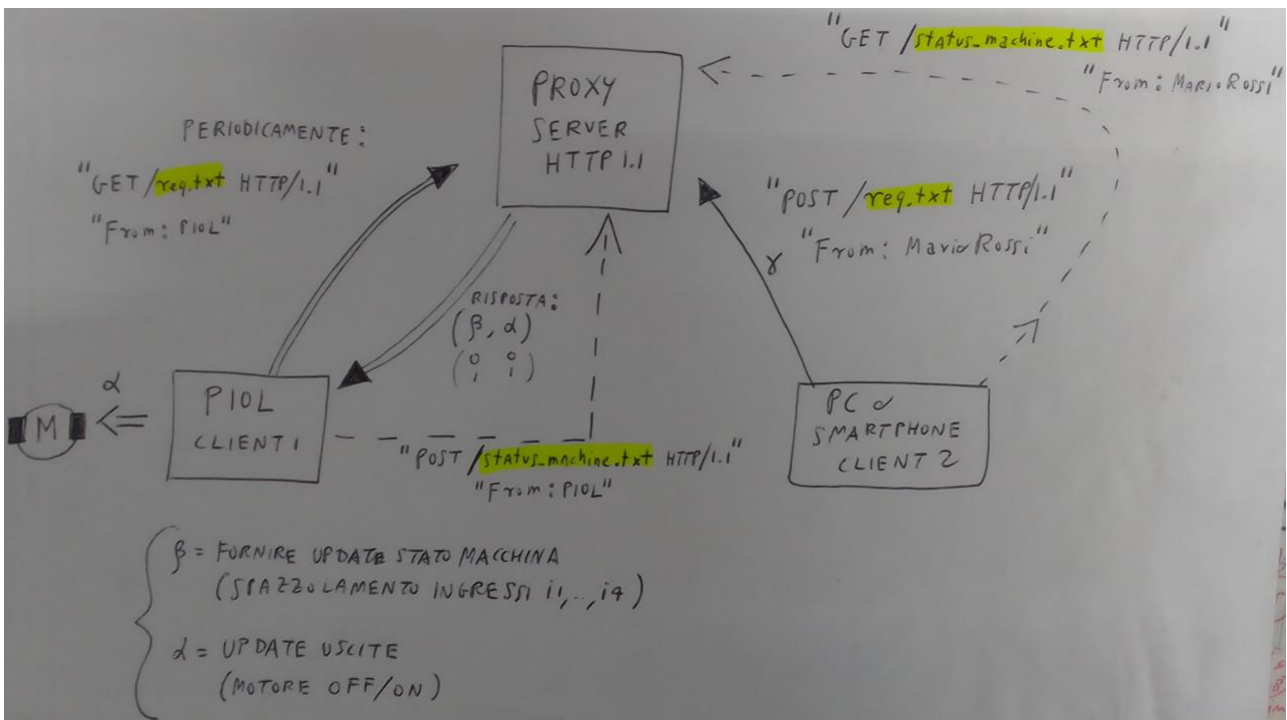 "GET /status_machine.txt HTTP/1.1"
"From: MarioRossi"
PROXY
SERVER
HTTP 1.1
PERIODICAMENTE:
"GET /req.txt HTTP/1.1"
"From: PIOL"
"POST /req.txt HTTP/1.1"
"From: MarioRossi"
γ
RISPOSTA:
(β, α)
α
M
PIOL
CLIENT 1
PC o
SMARTPHONE
CLIENT 2
"POST /status_machine.txt HTTP/1.1"
"From: PIOL"
β = FORNIRE UPDATE STATO MACCHINA
(SPAZZOLAMENTO INGRESSI i1,..,i4)
α = UPDATE USCITE
(MOTORE OFF/ON)